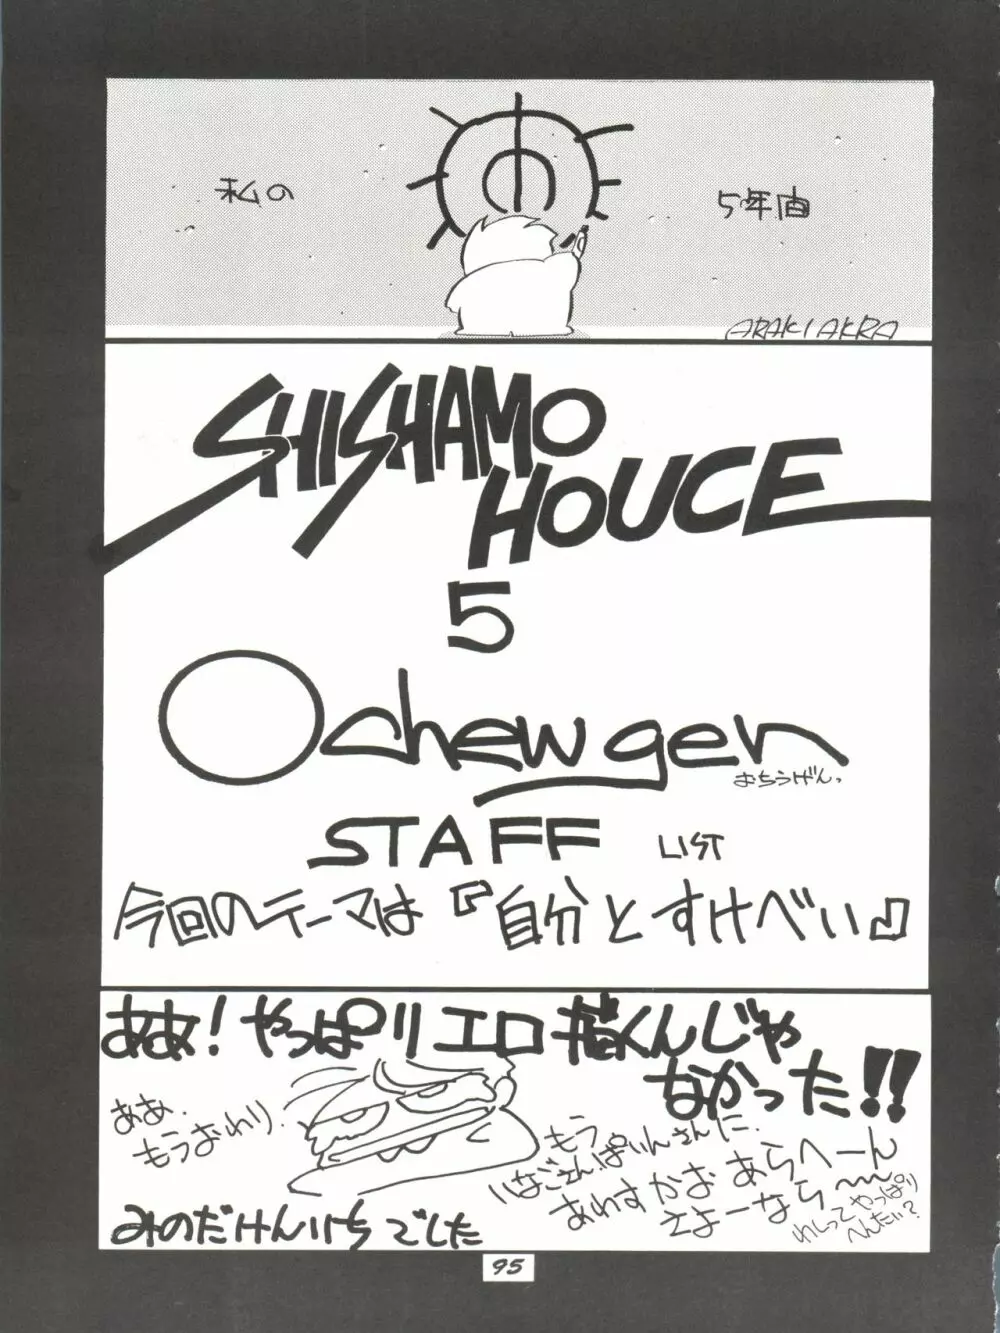 私の
5年間
ARAKI AKIRA
SHISHAMO
HOUCE
5
Ochewgen
おちうげん。
STAFF LIST
今回のテーマは『自分とすけべい』
ああ!やっぱりエロ描くんじゃ
なかった!!
ああ、
もうおわり.
もう
いなごえんぱいんさんに.
あわすかおあらへーん
えよーなら〜
わしってやっぱり
へんたい?
みのだけんいちでした
95